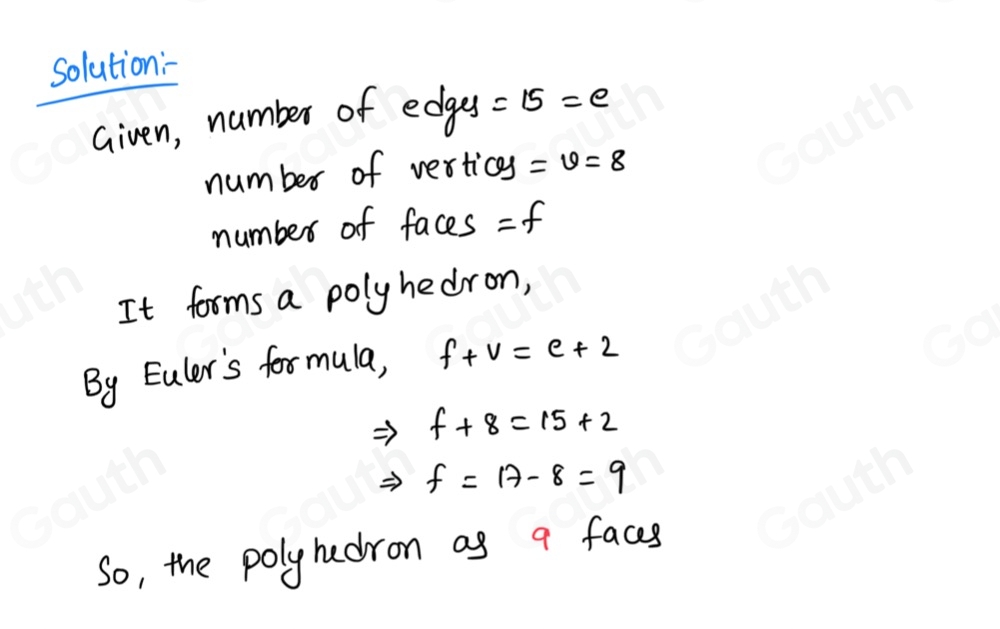 Solution:-
Given, number of edges = 15 = e
number of vertices = v = 8
number of faces = f
It forms a polyhedron,
By Euler's formula, f + v = e + 2
⇒ f + 8 = 15 + 2
⇒ f = 17 - 8 = 9
So, the polyhedron as 9 faces
Gauth